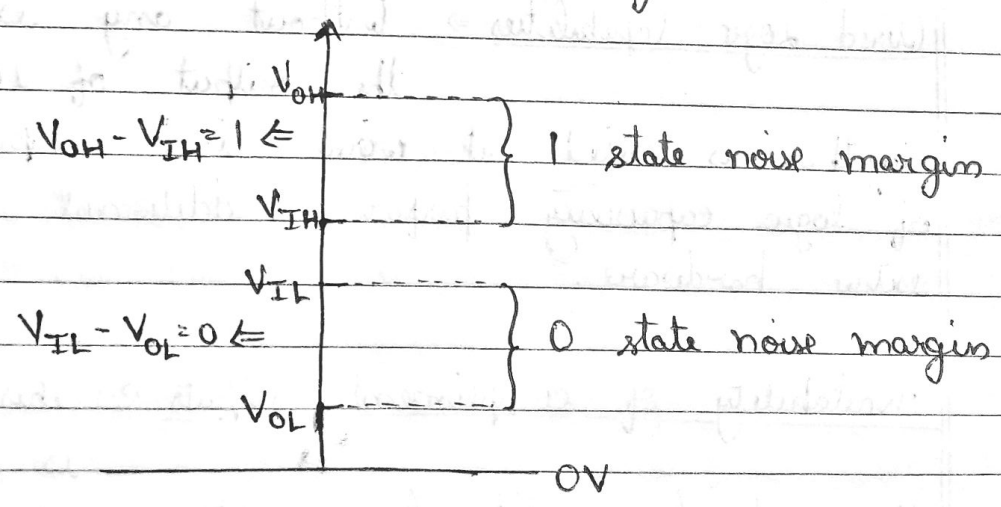 V_OH
V_OH - V_IH = 1 ⇐
1 state noise margin
V_IH
V_IL
V_IL - V_OL = 0 ⇐
0 state noise margin
V_OL
0V